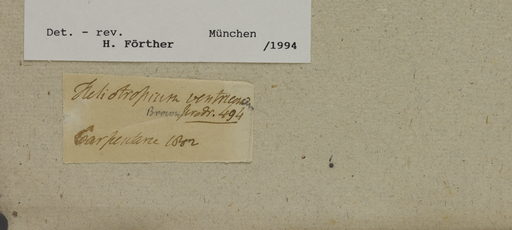 Det. - rev. München
H. Förther /1994
Heliotropium ventricosum
Brown Prodr. 494
Carpentaria 1802